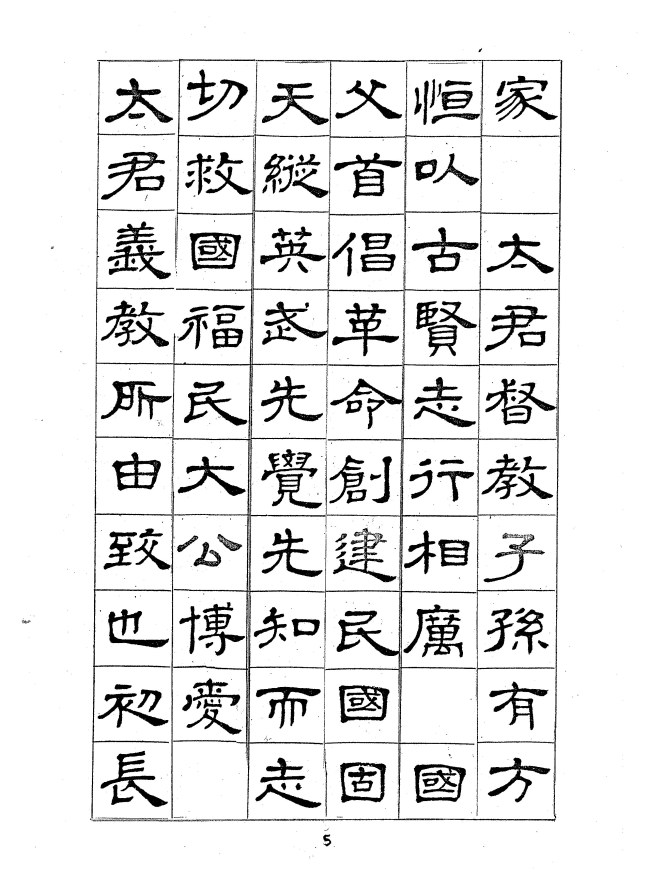 家　太君督教子孫有方
恒以古賢志行相厲　國
父首倡革命創建民國固
天縱英武先覺先知而志
切救國福民大公博愛
太君義教所由致也初長
5